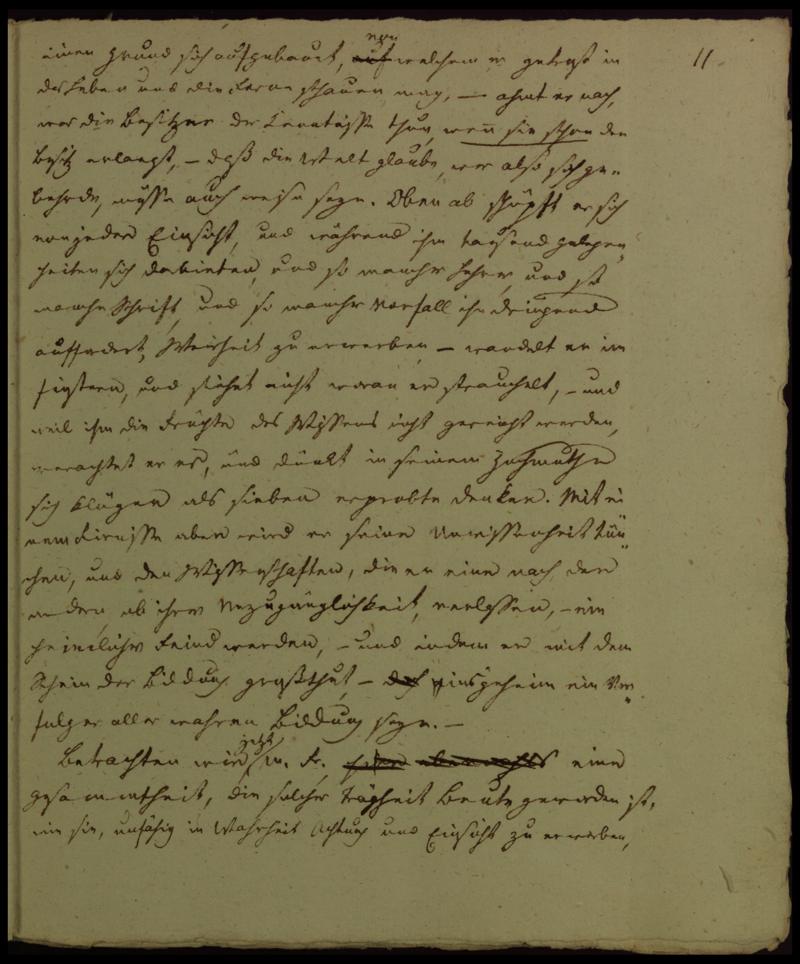 11.
einen Grund sich aufgebaut, auf von welchem er getrost in
das Leben und die Ferne schauen mag, — ahmt er nach,
was die Besitzer der Kenntnisse thun, wenn sie schon den
Besitz erlangt, — daß die Welt glaube, wer also sich ge-
behrde, müsse auch weise seyn. Oben ab schöpft er sich
von jeder Einsicht, und während ihm tausend Gelegen-
heiten sich darbieten, und so mancher Lehrer, und so
manche Schrift, und so mancher Vorfall ihn dringend
auffordert, Weisheit zu erwerben — wandelt er im
finstern, und siehet nicht woran er strauchelt, — und
weil ihm die Früchte des Wissens nicht gereicht werden,
verachtet er es, und dünkt in seinem Hochmuthe
sich klüger als sieben erprobte Denker. Mit ei
nem Firnisse aber wird er seine Unwissenheit tün-
chen, und den Wissenschaften, die er eine nach der
andern, ob ihrer Unzugänglichkeit, verlassen, — ein
heimlicher Feind werden, — und indem er mit dem
Schein der Bildung großthut, — doch insgeheim ein Ver-
folger aller wahren Bildung seyn. —
Betrachten wir jetzt, m. Fr. eine
Gesammtheit, die solcher Trägheit Beute geworden ist,
wie sie, unfähig in Wahrheit Achtung und Einsicht zu erwerben,